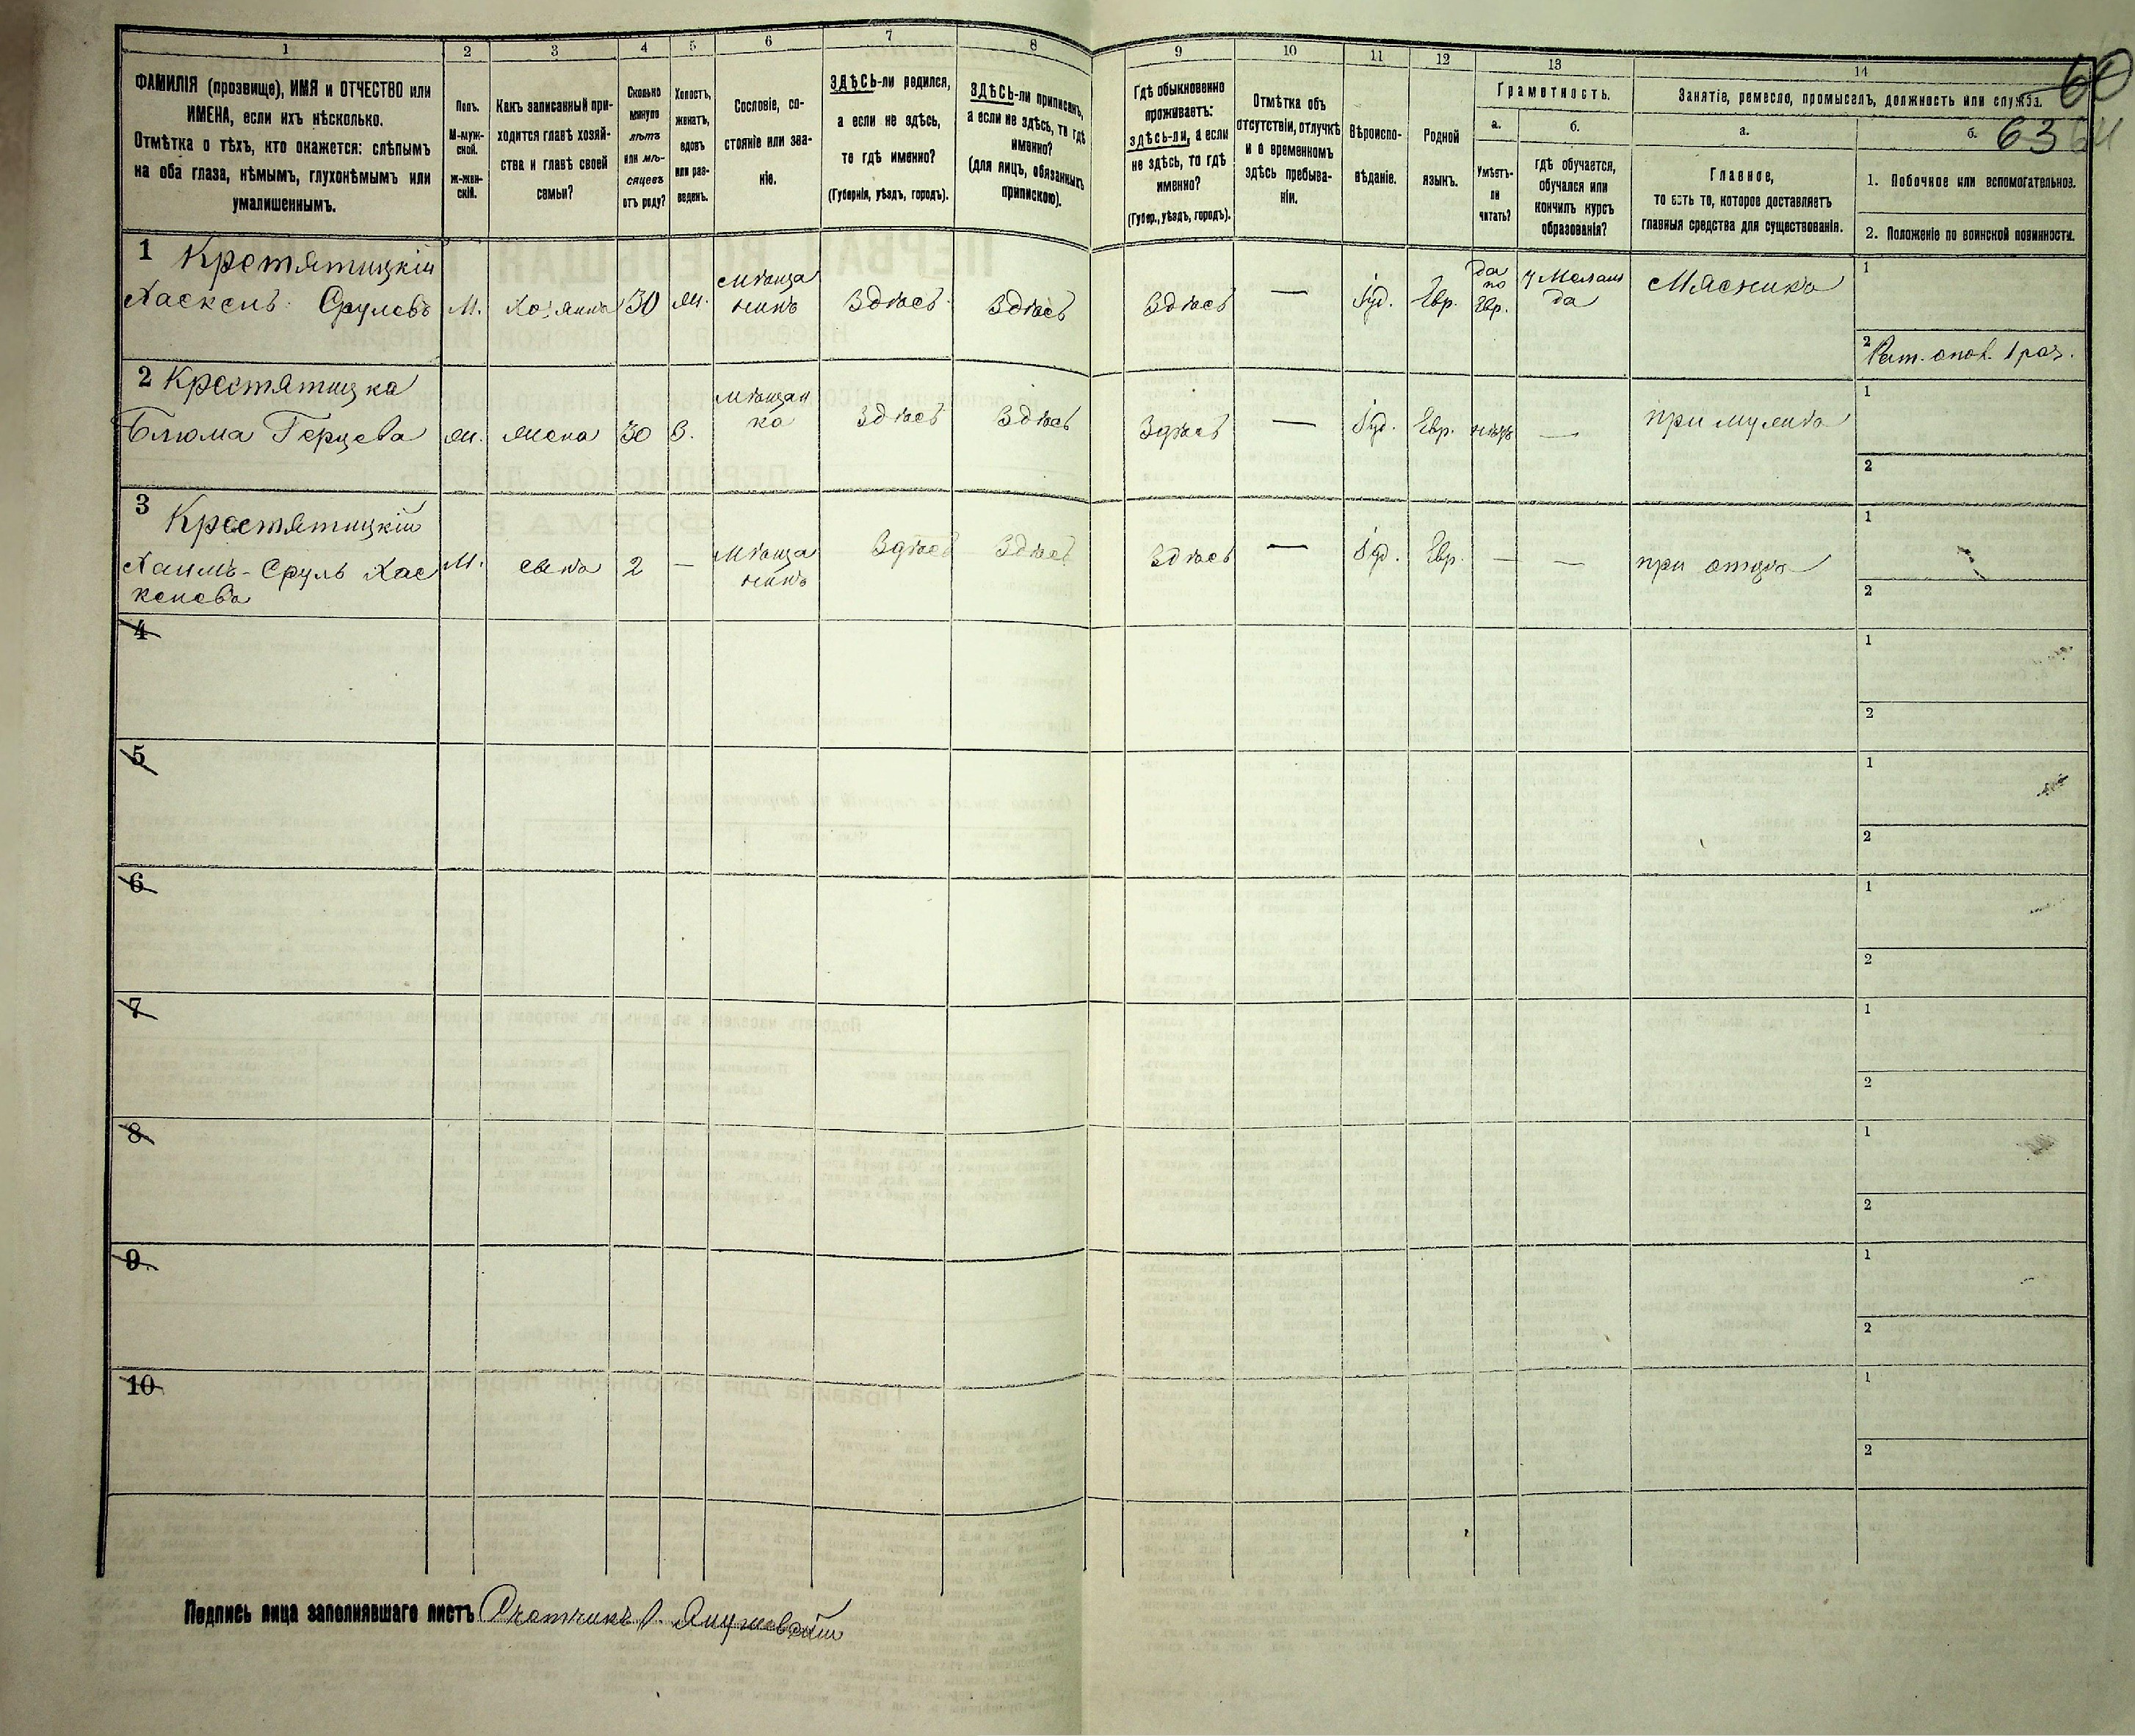 1
2
3
4
5
6
7
8
9
10
11
12
13
14
60
63 64
ФАМИЛІЯ (прозвище), ИМЯ и ОТЧЕСТВО или
ИМЕНА, если ихъ нѣсколько.
Отмѣтка о тѣхъ, кто окажется: слѣпымъ
на оба глаза, нѣмымъ, глухонѣмымъ или
умалишеннымъ.
Полъ.
М-муж-
ской.
ж-жен-
скій.
Какъ записанный при-
ходится главѣ хозяй-
ства и главѣ своей
семьи?
Сколько
минуло
лѣтъ
или мѣ-
сяцевъ
отъ роду?
Холостъ,
женатъ,
вдовъ
или раз-
веденъ.
Сословіе, со-
стояніе или зва-
ніе.
ЗДѢСЬ-ли родился,
а если не здѣсь,
то гдѣ именно?
(Губернія, уѣздъ, городъ).
ЗДѢСЬ-ли приписанъ,
а если не здѣсь, то гдѣ
именно?
(для лицъ, обязанныхъ
припискою).
Гдѣ обыкновенно
проживаетъ:
здѣсь-ли, а если
не здѣсь, то гдѣ
именно?
(Губер., уѣздъ, городъ).
Отмѣтка объ
отсутствіи, отлучкѣ
и о временномъ
здѣсь пребыва-
ніи.
Вѣроиспо-
вѣданіе.
Родной
языкъ.
Грамотность.
а.
Умѣетъ-
ли
читать?
б.
гдѣ обучается,
обучался или
кончилъ курсъ
образованія?
Занятіе, ремесло, промыселъ, должность или служба.
а.
Главное,
то есть то, которое доставляетъ
главныя средства для существованія.
б.
1. Побочное или вспомогательное.
2. Положеніе по воинской повинности.
1 Крестятицкій
Хаскель Срулевъ М. Хозяинъ 30 ж. мѣща
нинъ Здѣсь Здѣсь Здѣсь — Іуд. Евр. да
по
Евр. у Мелам
да Мясникъ 1
2 Рат. опол. 1 раз.
2 Крестятицка
Блюма Герцева ж. жена 30 З. мѣщан
ка Здѣсь Здѣсь Здѣсь — Іуд. Евр. нѣтъ — при мужѣ 1
2
3 Крестятицкій
Хаимъ-Сруль Хас
келевъ М. сынъ 2 — Мѣща
нинъ Здѣсь Здѣсь Здѣсь — Іуд. Евр. — — при отцѣ 1
2
4 1
2
5 1
2
6 1
2
7 1
2
8 1
2
9 1
2
10 1
2
Подпись лица заполнявшаго листъ Счетчикъ